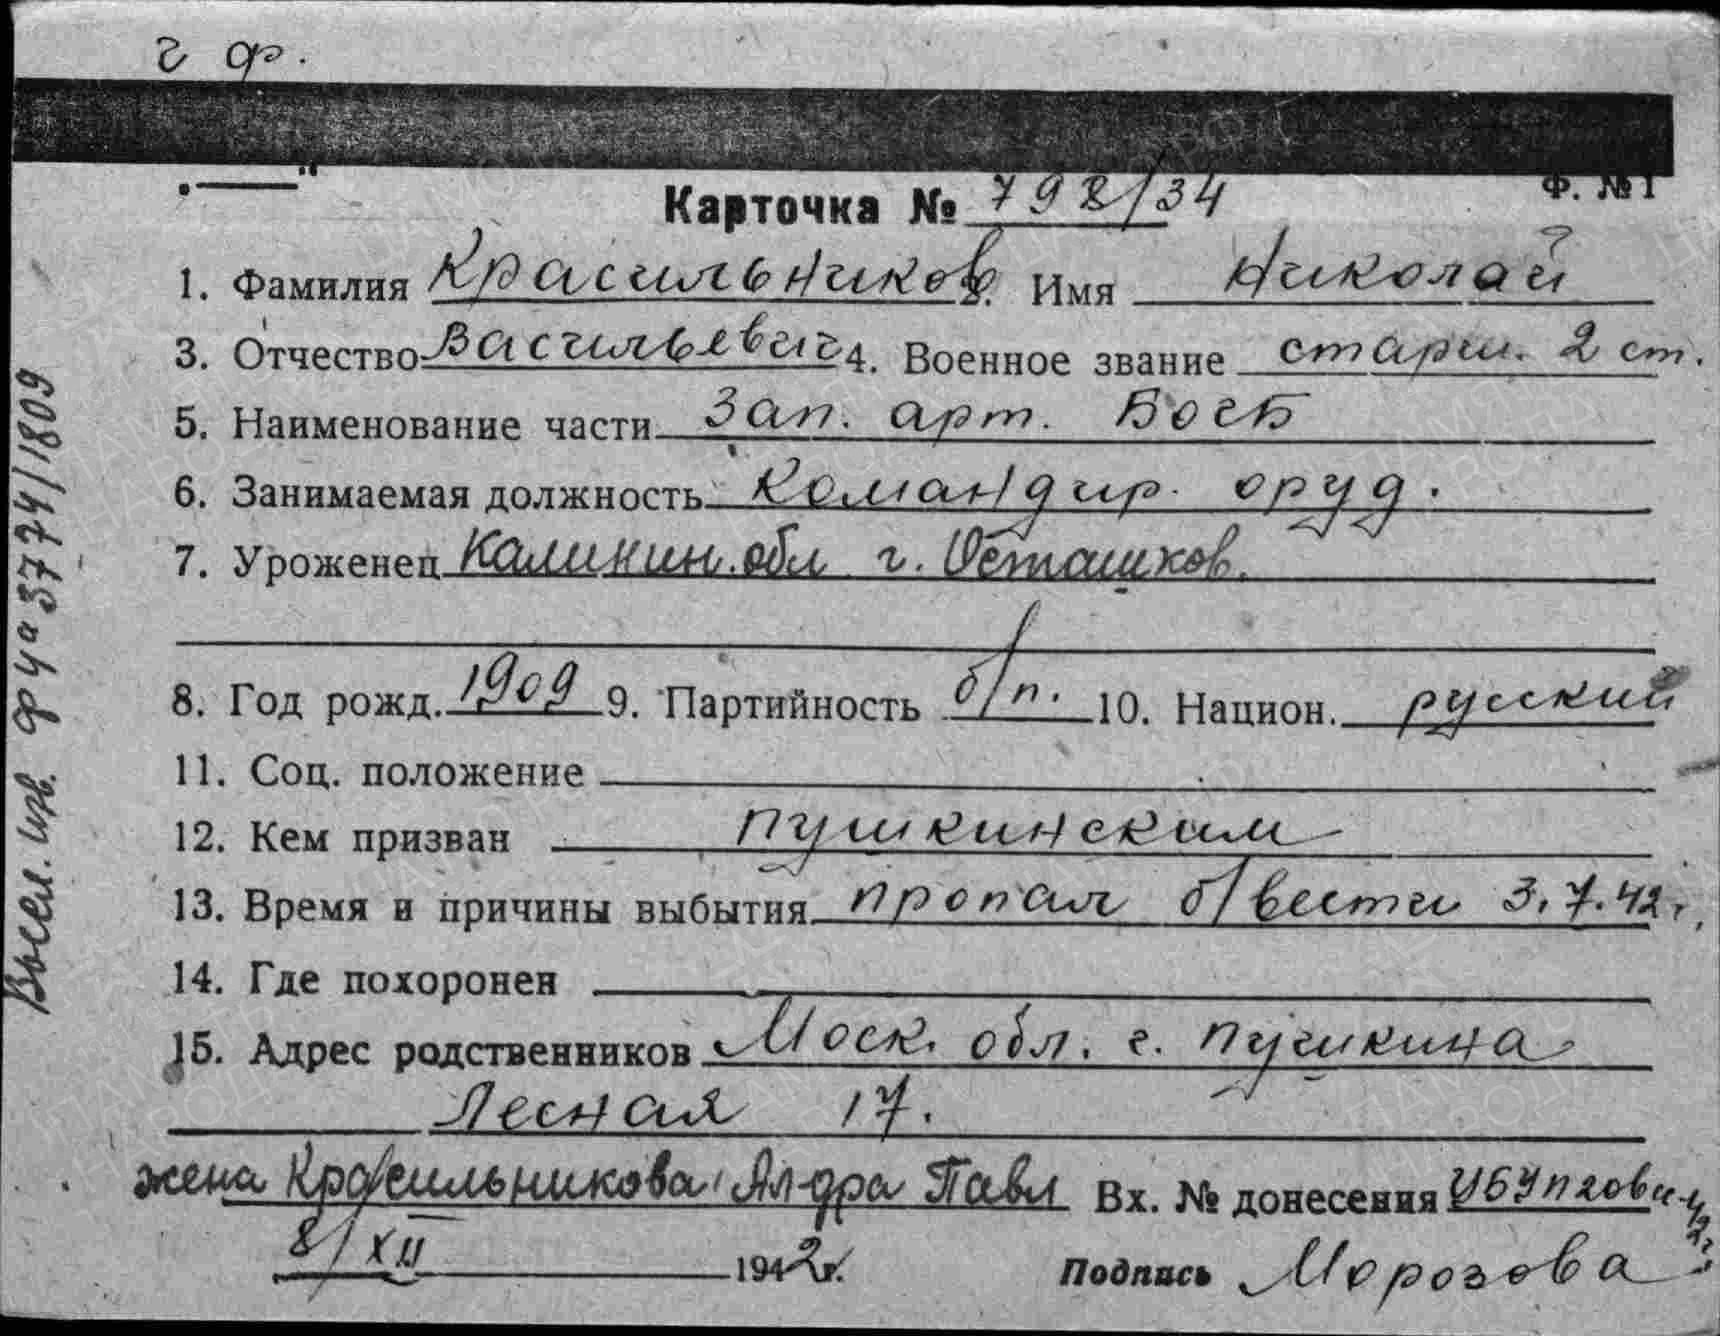 ч ф.
Карточка № 798/34 Ф. № 1
1. Фамилия Красильников. Имя Николай
3. Отчество Васильевич 4. Военное звание старш. 2 ст.
5. Наименование части Зап. арт.
6. Занимаемая должность Командир. оруд.
7. Уроженец Калинин. обл г. Осташков.
8. Год рожд. 1909 9. Партийность б/п. 10. Национ. русский
11. Соц. положение
12. Кем призван Пушкинским
13. Время и причины выбытия пропал б/вести 3.7.42г.
14. Где похоронен
15. Адрес родственников Моск. обл. г. Пушкина
Лесная 17.
жена Красильникова Ал-дра Павл Вх. № донесения
8/XII 1942г. Подпись Морозова
Высел. изв. ф 4а 3774/1809